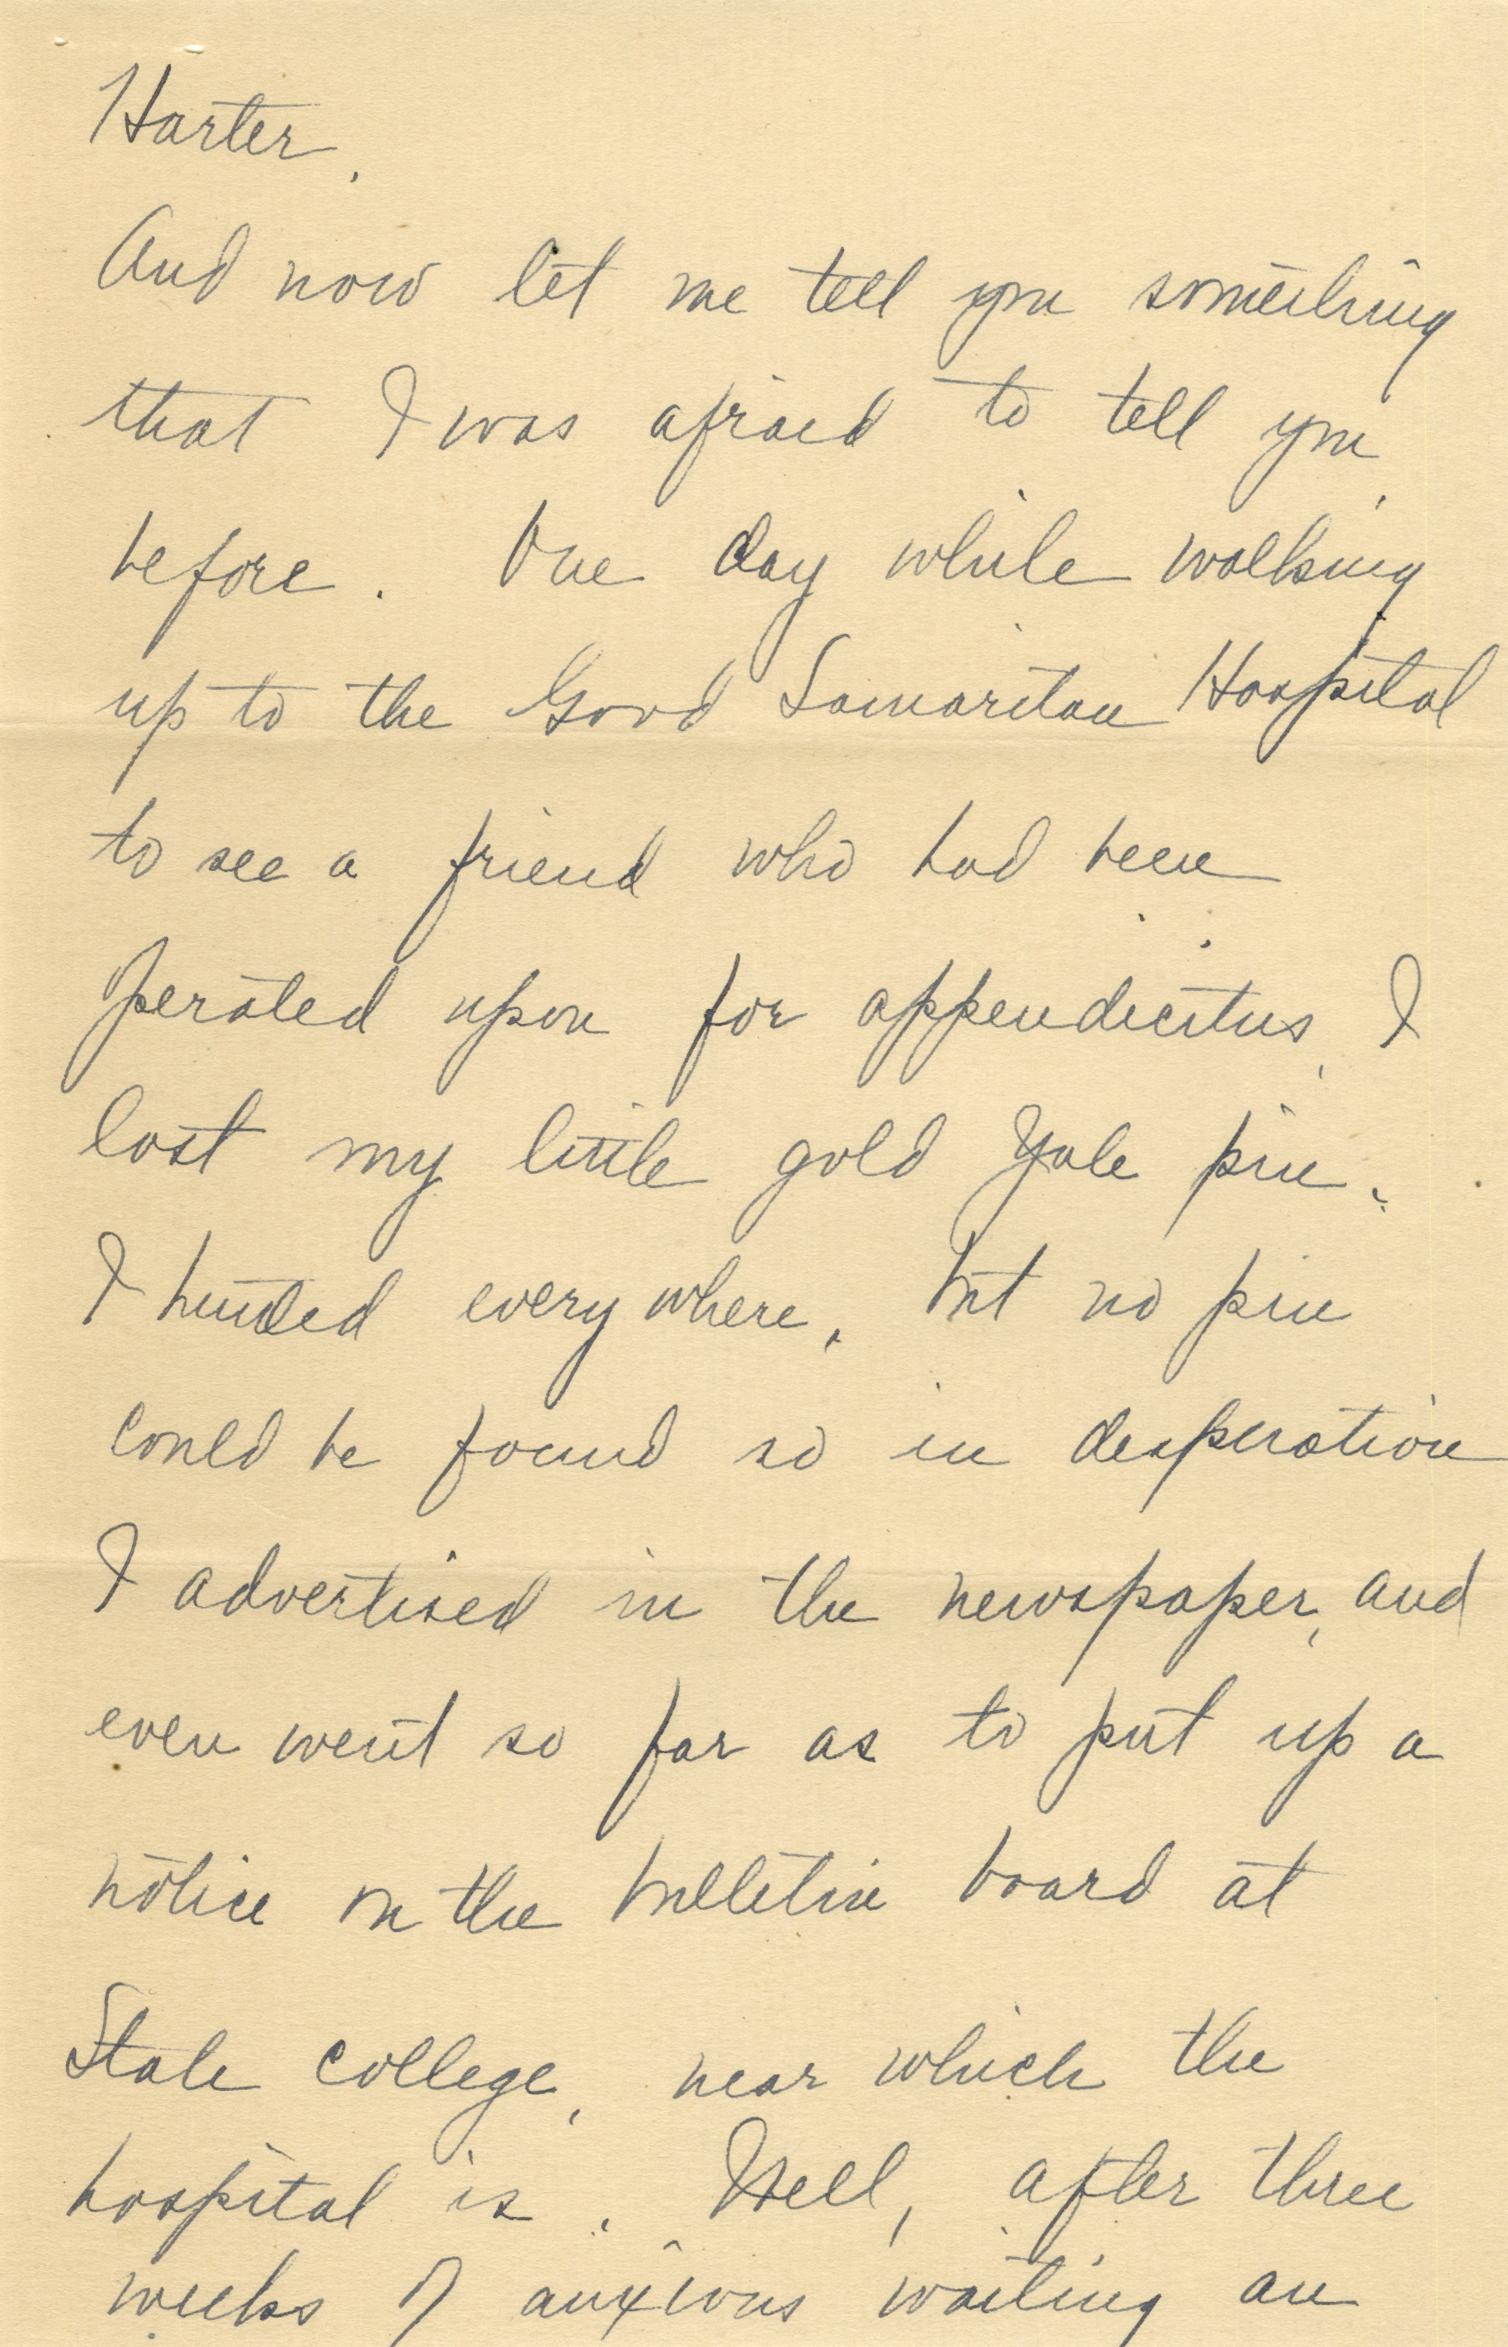 Harter,
And now let me tell you something
that I was afraid to tell you,
before. One day while walking
up to the Good Samaritan Hospital
to see a friend who had been
perated upon for appendicitus, I
lost my little gold Yale pin.
I hunted every where, but no pin
could be found so in desperation
I advertised in the newspaper, and
even went so far as to put up a
notice on the bulletin board at
State college, near which the
hospital is. Well, after three
weeks of anxious waiting an